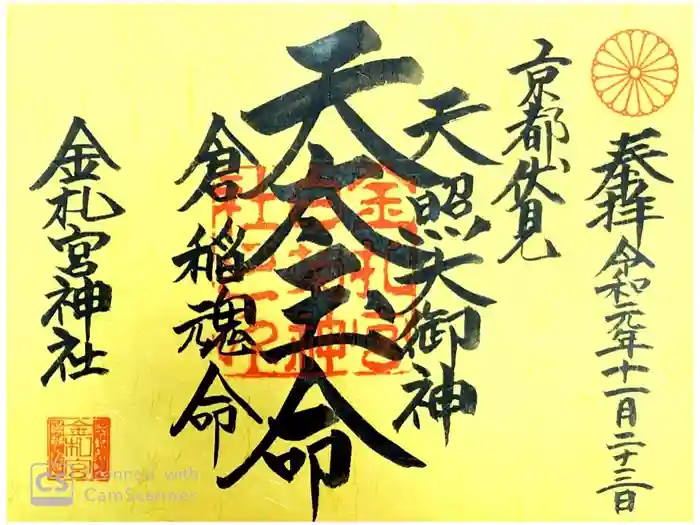 奉拝 令和元年十一月二十三日
京都伏見
天照大御神
天太玉命
倉稲魂命
金札宮神社
金札宮
Scanned with
CamScanner
CS